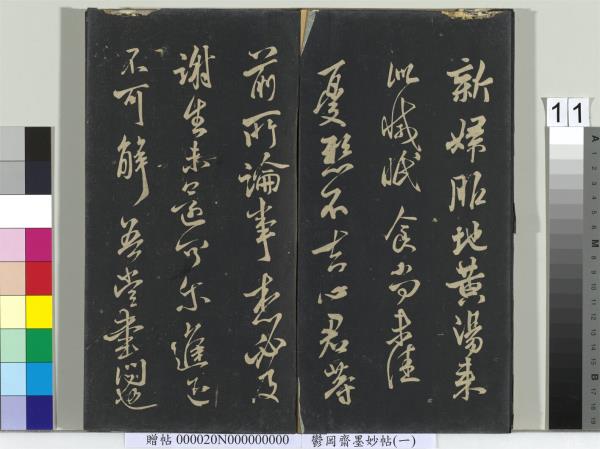 新婦服地黃湯來
似減眠食尚未佳
憂懸不去心君等
前所論事想必及
謝生未還可爾進退
不可解吾當書問也
贈帖 000020N000000000 鬱岡齋墨妙帖(一)
11